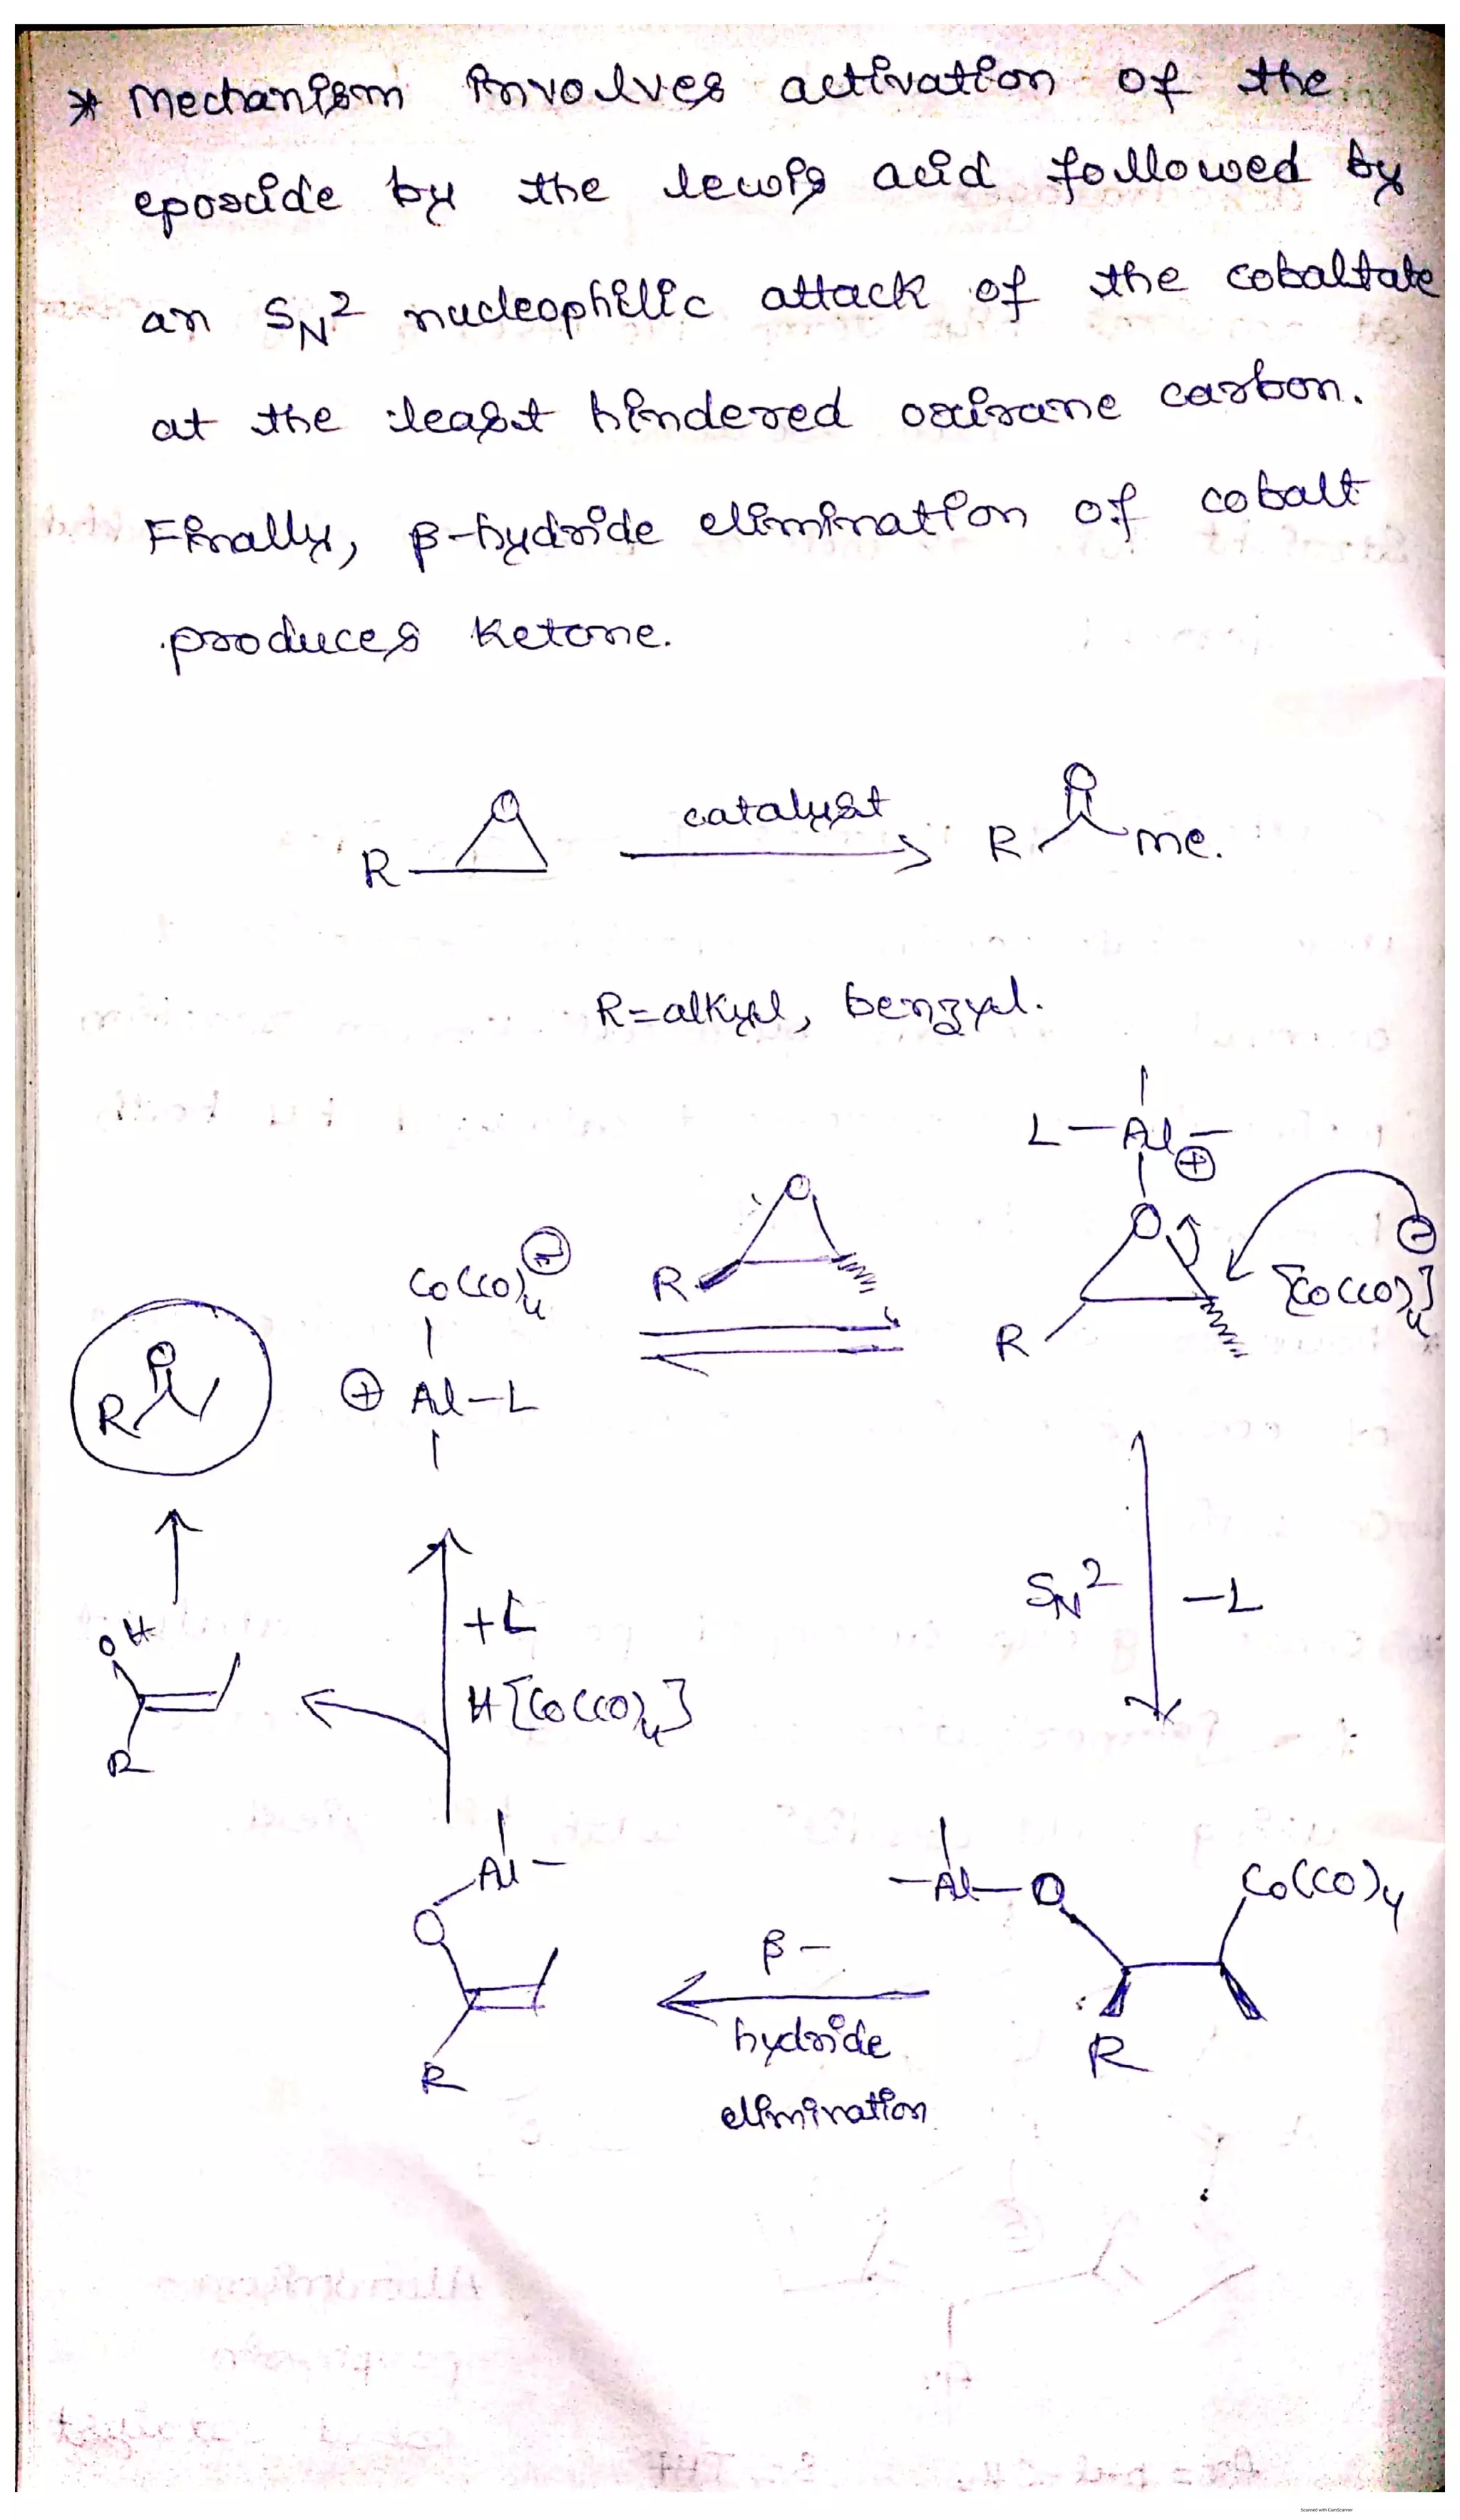 * Mechanism involves activation of the
epoxide by the lewis acid followed by
an SN2 nucleophilic attack of the cobaltate
at the least hindered oxirane carbon.
Finally, β-hydride elimination of cobalt
produces ketone.
O
R catalyst O R me.
R=alkyl, benzyl.
L-Al- ⊕
O
Co(CO)4 ⊖ R O R [Co(CO)4] ⊖
O R ⊕ Al-L
SN2 -L
OH R +L
H[Co(CO)4]
Al- O R
-Al-O Co(CO)4 R
β-
hydride
elimination
Scanned with CamScanner